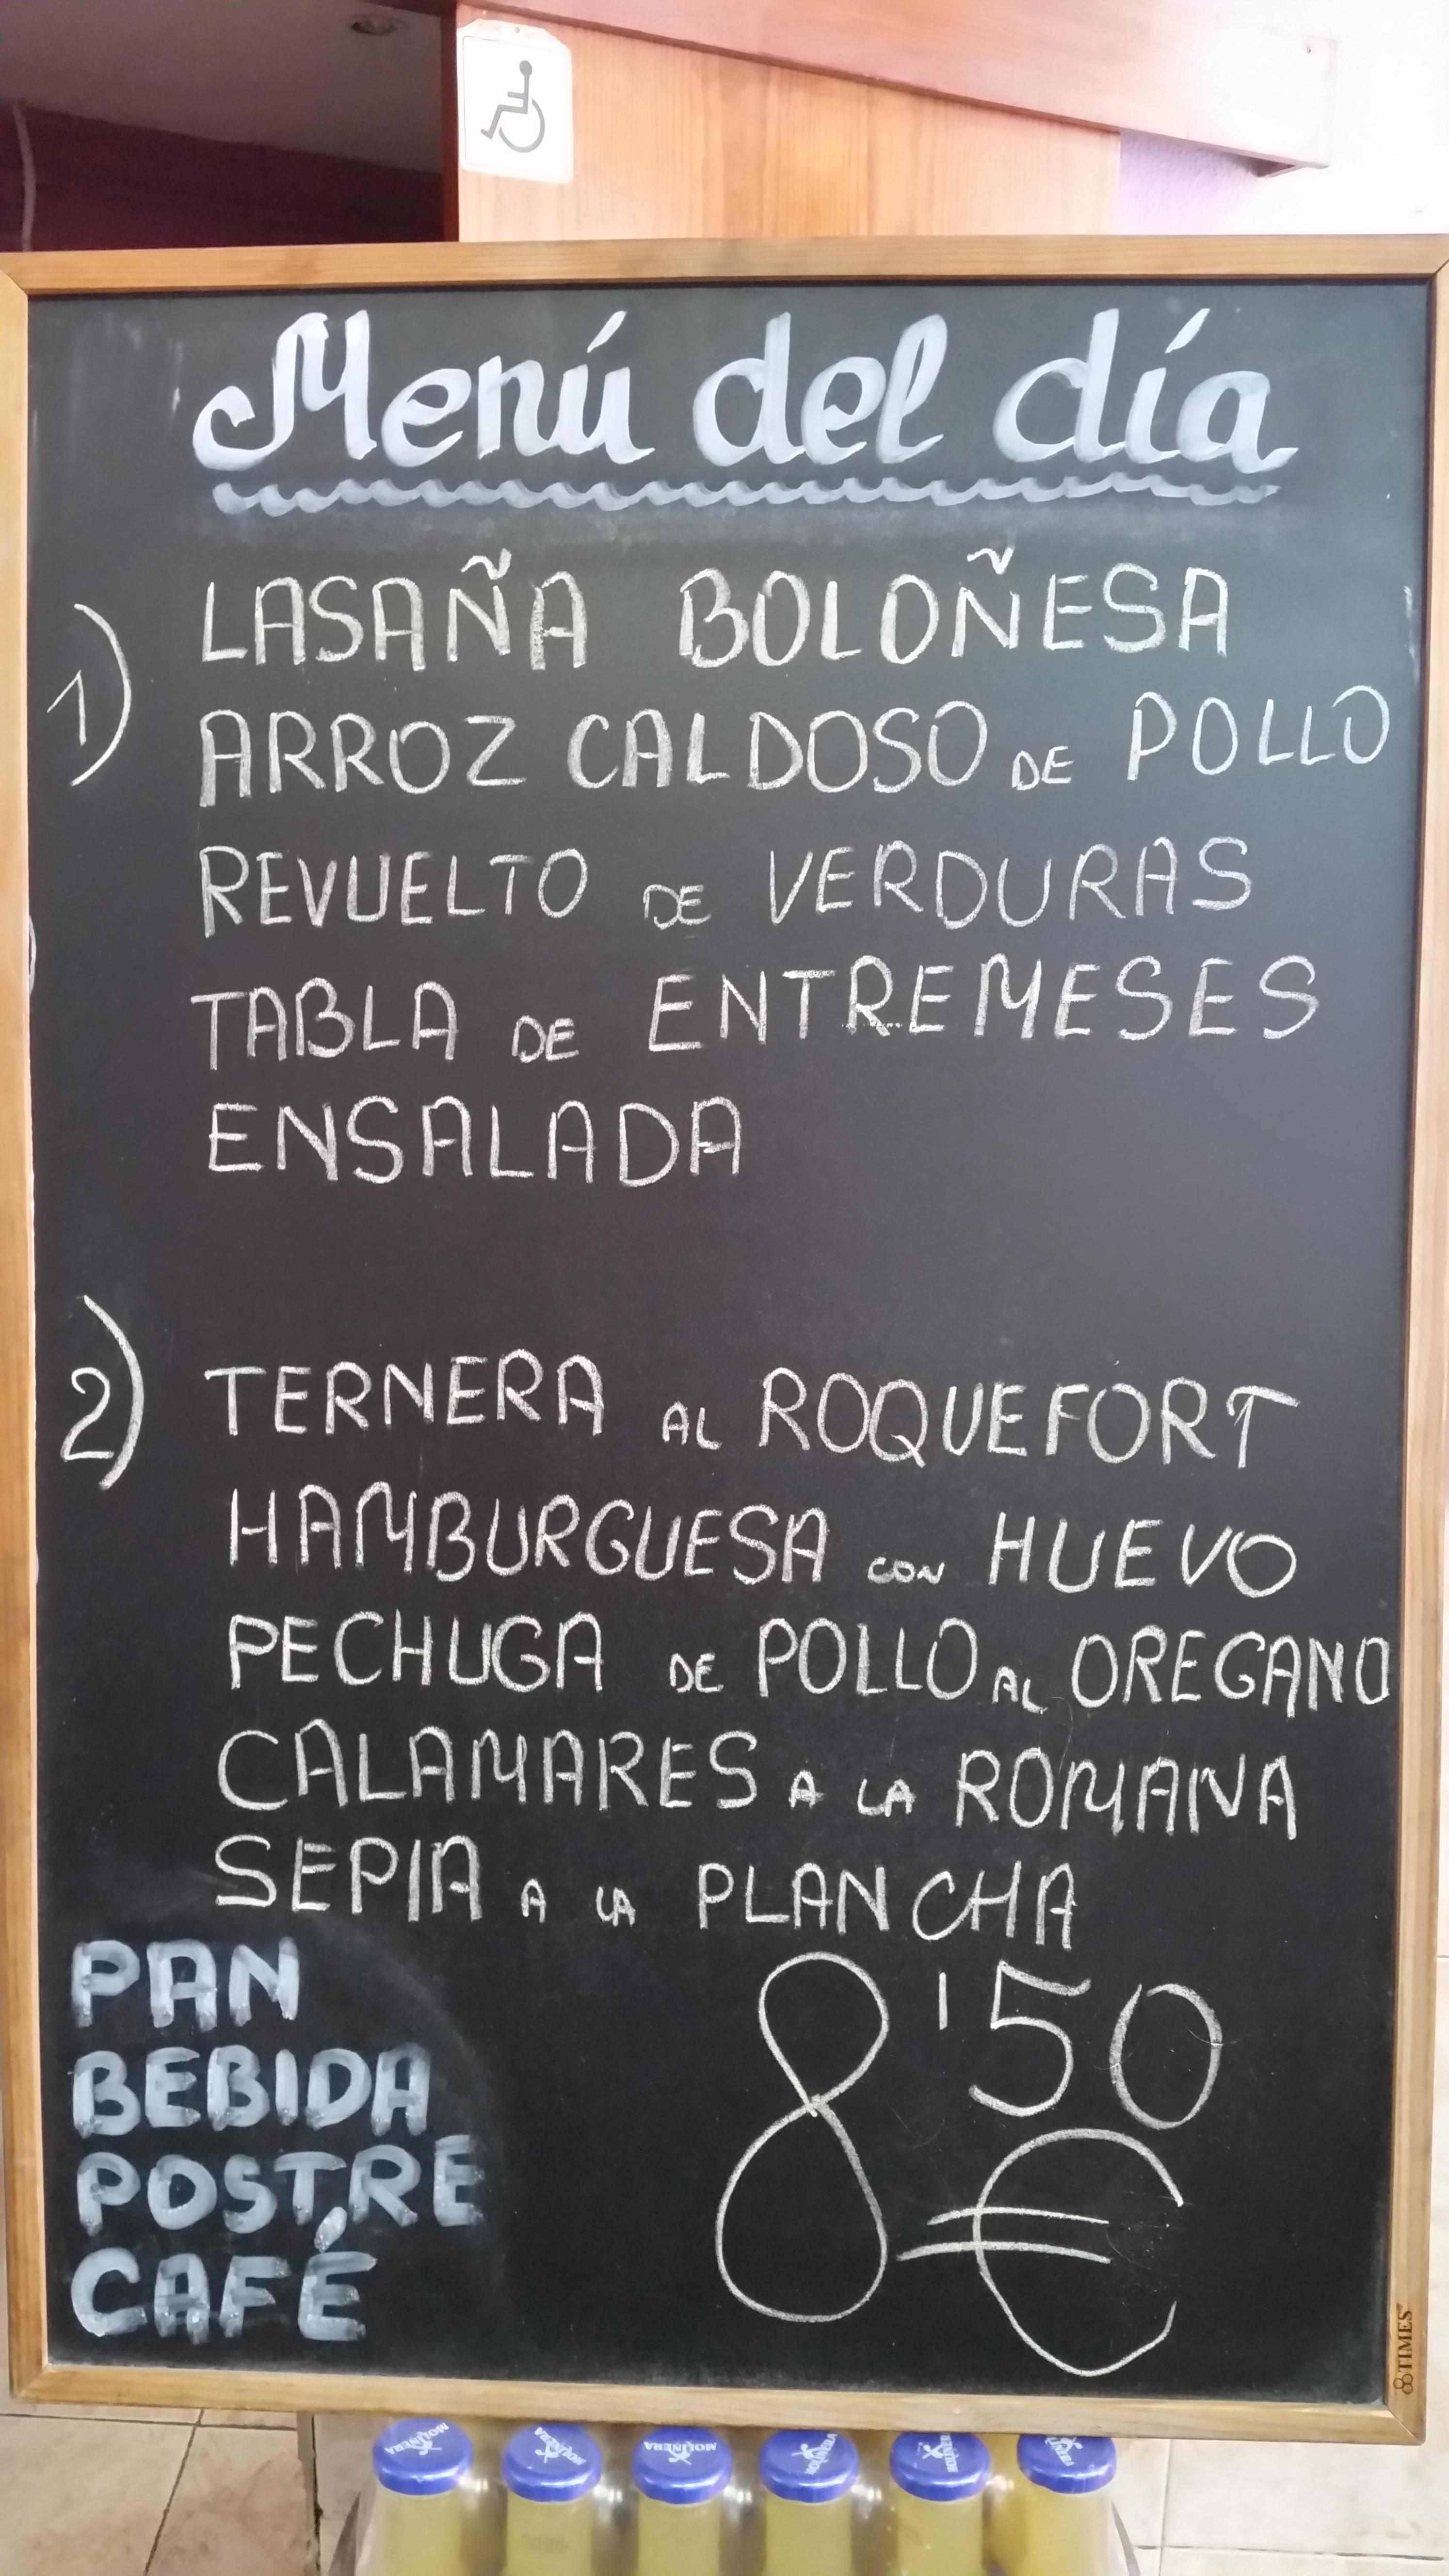 Menú del día
1) LASAÑA BOLOÑESA
ARROZ CALDOSO DE POLLO
REVUELTO DE VERDURAS
TABLA DE ENTREMESES
ENSALADA
2) TERNERA AL ROQUEFORT
HAMBURGUESA CON HUEVO
PECHUGA DE POLLO AL OREGANO
CALAMARES A LA ROMANA
SEPIA A LA PLANCHA
PAN
BEBIDA
POSTRE
CAFÉ
8'50
€
TIMES
MOLINERA
MOLINERA
MOLINERA
MOLINERA
MOLINERA
MOLINERA